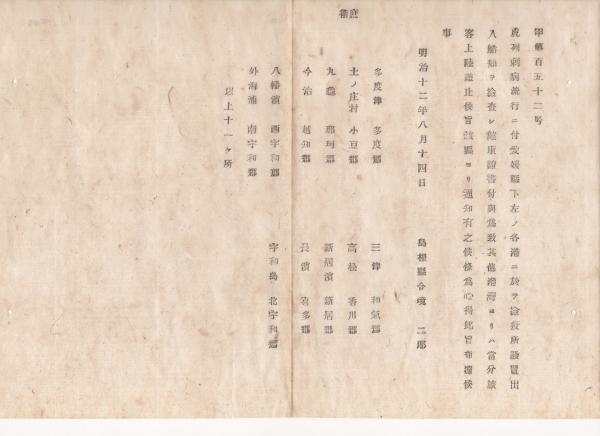 甲第百五十二号
虎列剌病流行ニ付愛媛縣下左ノ各港ニ於テ檢疫所設置出
入船舶ヲ檢査シ健康證書付與為致其他港灣ヨリハ當分旅
客上陸差止候旨該縣ヨリ通知有之候條為心得此旨布達候
事
明治十二年八月十四日 島根縣令境二郎
庶務
多度津 多度郡 三津 和氣郡
土ノ庄村 小豆郡 高松 香川郡
九亀 那珂郡 新居濱 新居郡
今治 越知郡 長濱 喜多郡
八幡濱 西宇和郡 宇和島 北宇和郡
外海浦 南宇和郡
以上十一ヶ所